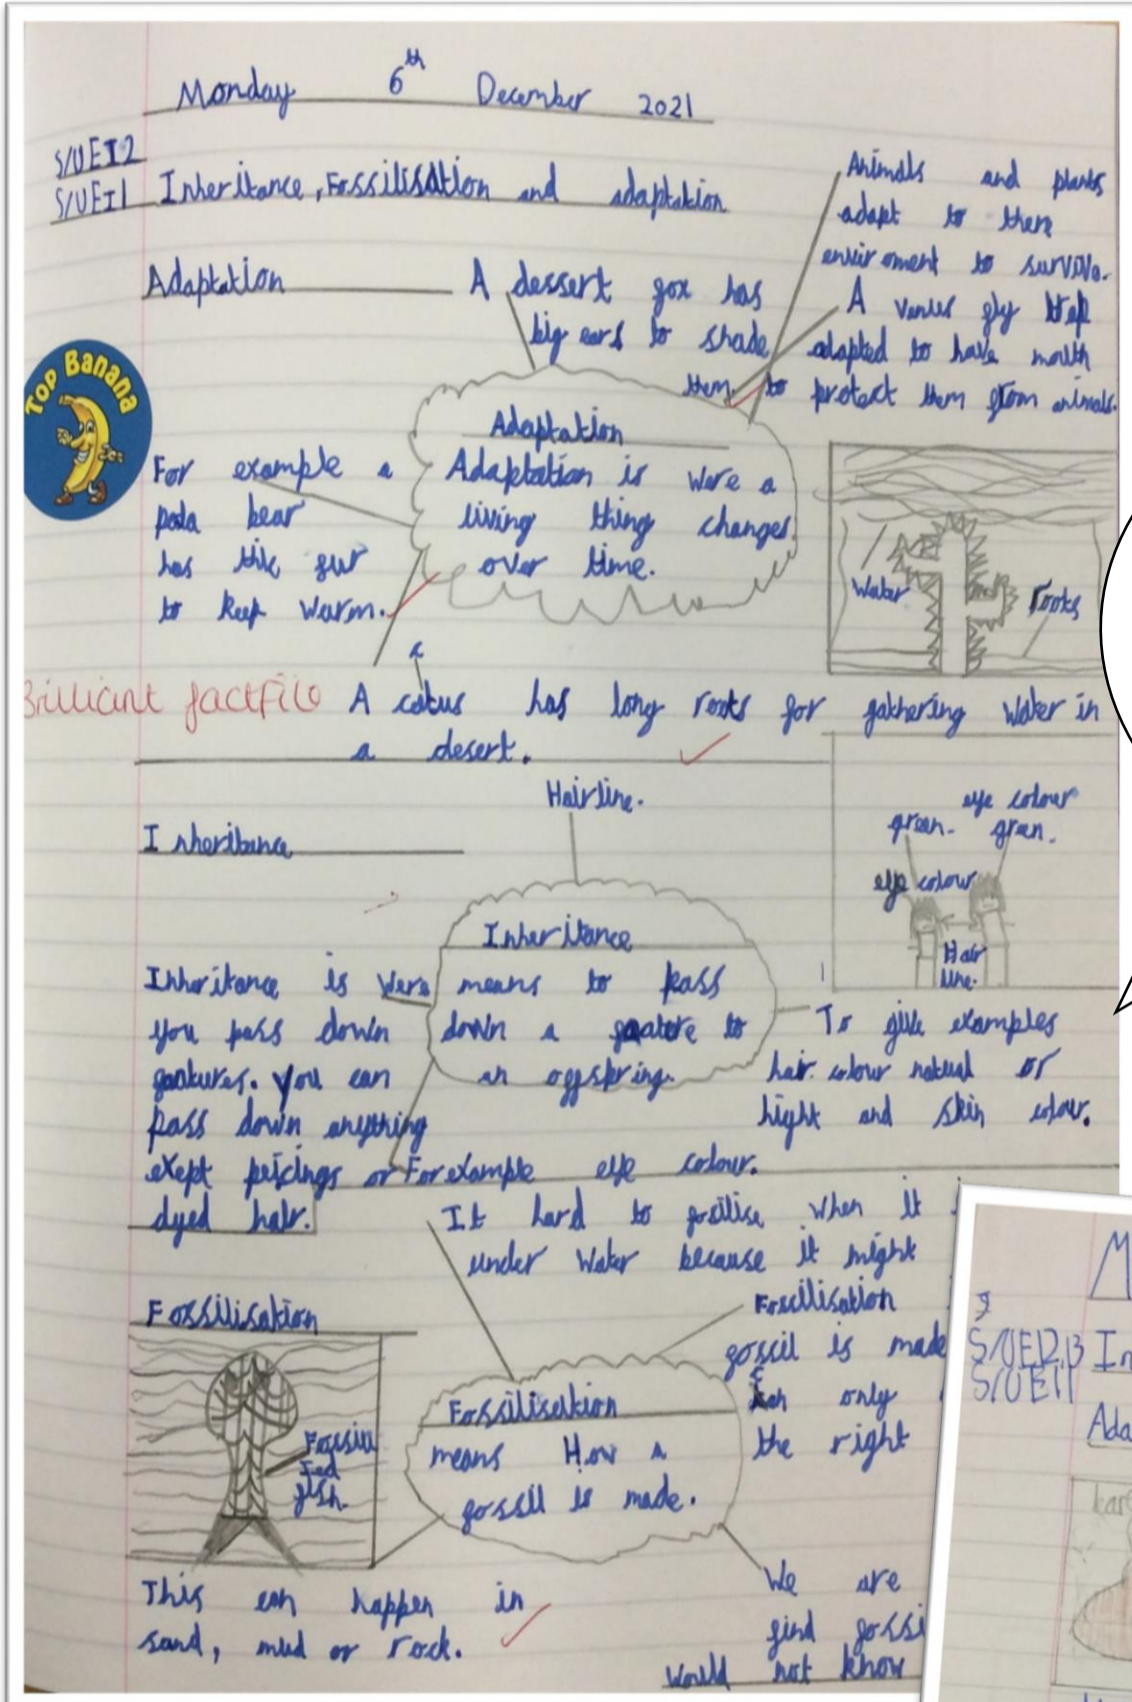 Monday 6th December 2021
S/UEI2
S/UEI1 Inheritance, Fossilisation and adaptation
Animals and plants
adapt to there
enviroment to survive.
Adaptation
A dessert fox has
big ears to shade
them.
A venus fly trap
adapted to have mouth
to protect them from animals.
TOP Banana
Adaptation
Adaptation is were a
living thing changes
over time.
For example a
pola bear
has thik fur
to keep warm.
Water
roots
Brilliant factfile
A catus has long roots for gathering water in
c
a desert.
Hairline.
Inheritance
eye colour
green.
eye colour
green.
Hair
line.
Inheritance
means to pass
down a feature to
an offspring.
Inheritance is were
you pass down
featurers. You can
pass down anything
exept peicings or
dyed hair.
To give examples
hair colour natual or
hight and skin colour.
For example eye colour.
It hard to fosilise when it
under water because it might
Fossilisation
Foscilisation
foscil is made
can only
the right
Fossilisation
means How a
fossil is made.
fish.
This can happen in
sand, mud or rock.
We are
find fossi
would not know
M
S/UEI2,13 In
S/UEI1
Ada
ear